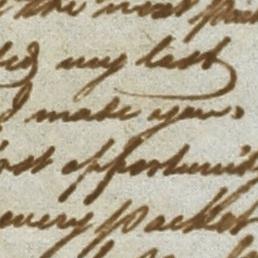 the next pac
ed my last
I made you,
rst opportunit
every packet